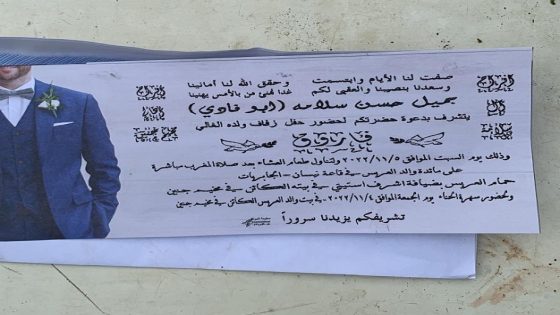 صفت لنا الأيام وابتسمت وحقق الله لنا أمانينا
وسعدنا بنصيبنا والعقبى لكم غدا نحن من الأمس يهنينا
أفراح
أفراح
جميل حسن سلامه (ابو فادي)
يتشرف بدعوة حضرتكم لحضور حفل زفاف ولده الغالي
فاروق
وذلك يوم السبت الموافق ٢٠٢٢/١١/٥ ولتناول طعام العشاء بعد صلاة المغرب مباشرة
على مائدة والد العريس في قاعة نيسان - الجابريات
حمام العريس بضيافة اشرف استيتي - في بيته الكائن في مخيم جنين
وحضور سهرة الحناء يوم الجمعة الموافق ٢٠٢٢/١١/٤ - في بيت والد العريس الكائن في مخيم جنين
تشريفكم يزيدنا سروراً